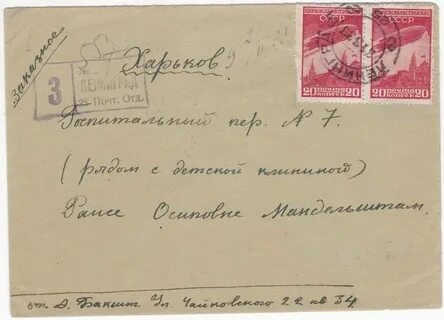 Заказное
Харьков
З
ЛЕНИНГРАД
25 Почт. Отд.
Госпитальный пер. № 7.
(рядом с детской клиникой)
Раисе Осиповне Мандельштам.
от Д. Бакшт Ул. Чайковского 22 кв 34
СССР
СССР
20 20
20 20
ЛЕНИНГРАД